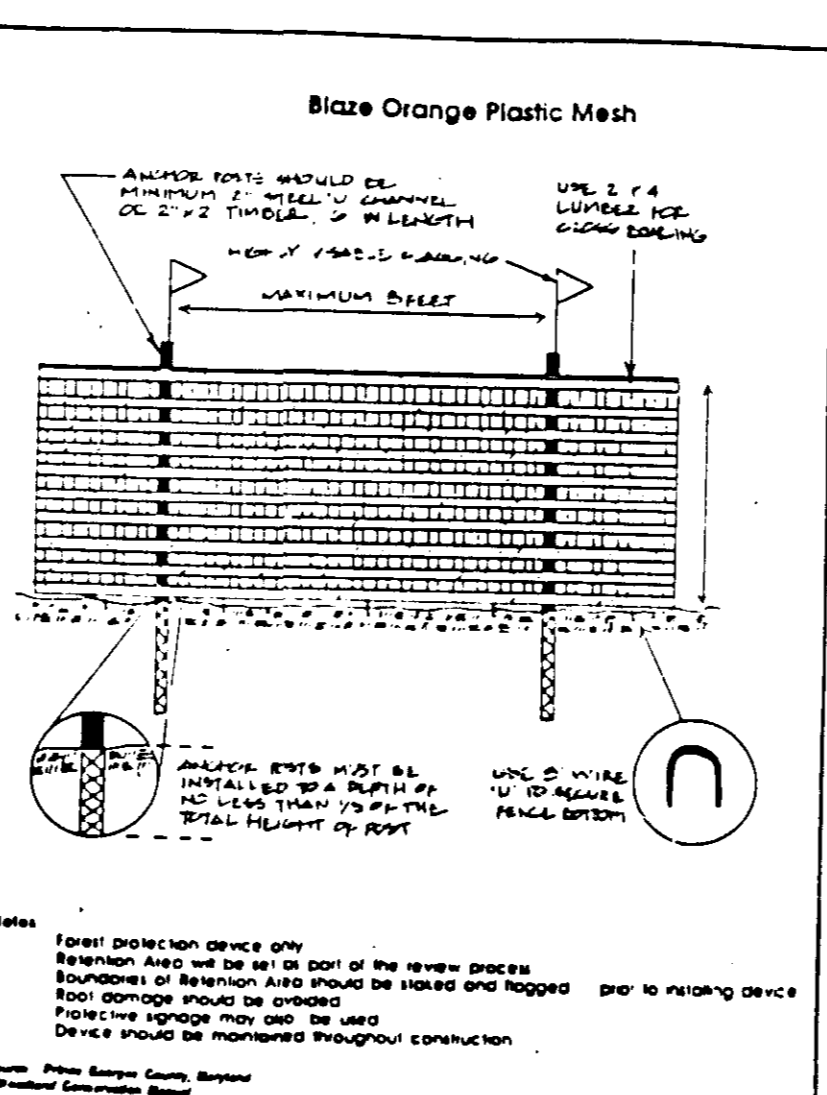 Blaze Orange Plastic Mesh
ANCHOR POSTS SHOULD BE
MINIMUM 2" STEEL 'U' CHANNEL
OR 2" x 2" TIMBER, IN LENGTH
USE 2 x 4
LUMBER FOR
CROSS BRACING
HIGHLY VISABLE FLAGGING
MAXIMUM FEET
ANCHOR POSTS MUST BE
INSTALLED TO A DEPTH OF
NO LESS THAN 1/3 OF THE
TOTAL HEIGHT OF POST
USE WIRE
'U' TO SECURE
FENCE BOTTOM
Notes
Forest protection device only
Retention Area will be set as part of the review process
Boundaries of Retention Area should be staked and flagged prior to installing device
Root damage should be avoided
Protective signage may also be used
Device should be maintained throughout construction
Source Prince Georges County, Maryland
Woodland Conservation Manual